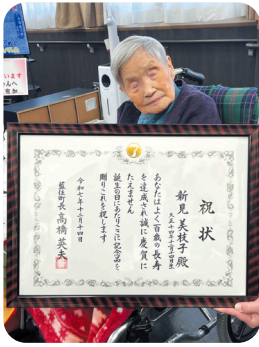 祝状
新見美枝子殿
大正十四年十二月十四日生
あなたはよく百歳の長寿
を達成され誠に慶賀に
たえません
誕生の日にあたりここに記念品を
贈りこれを祝します
令和七年十二月十四日
藍住町長 高橋英夫
います
さんへ